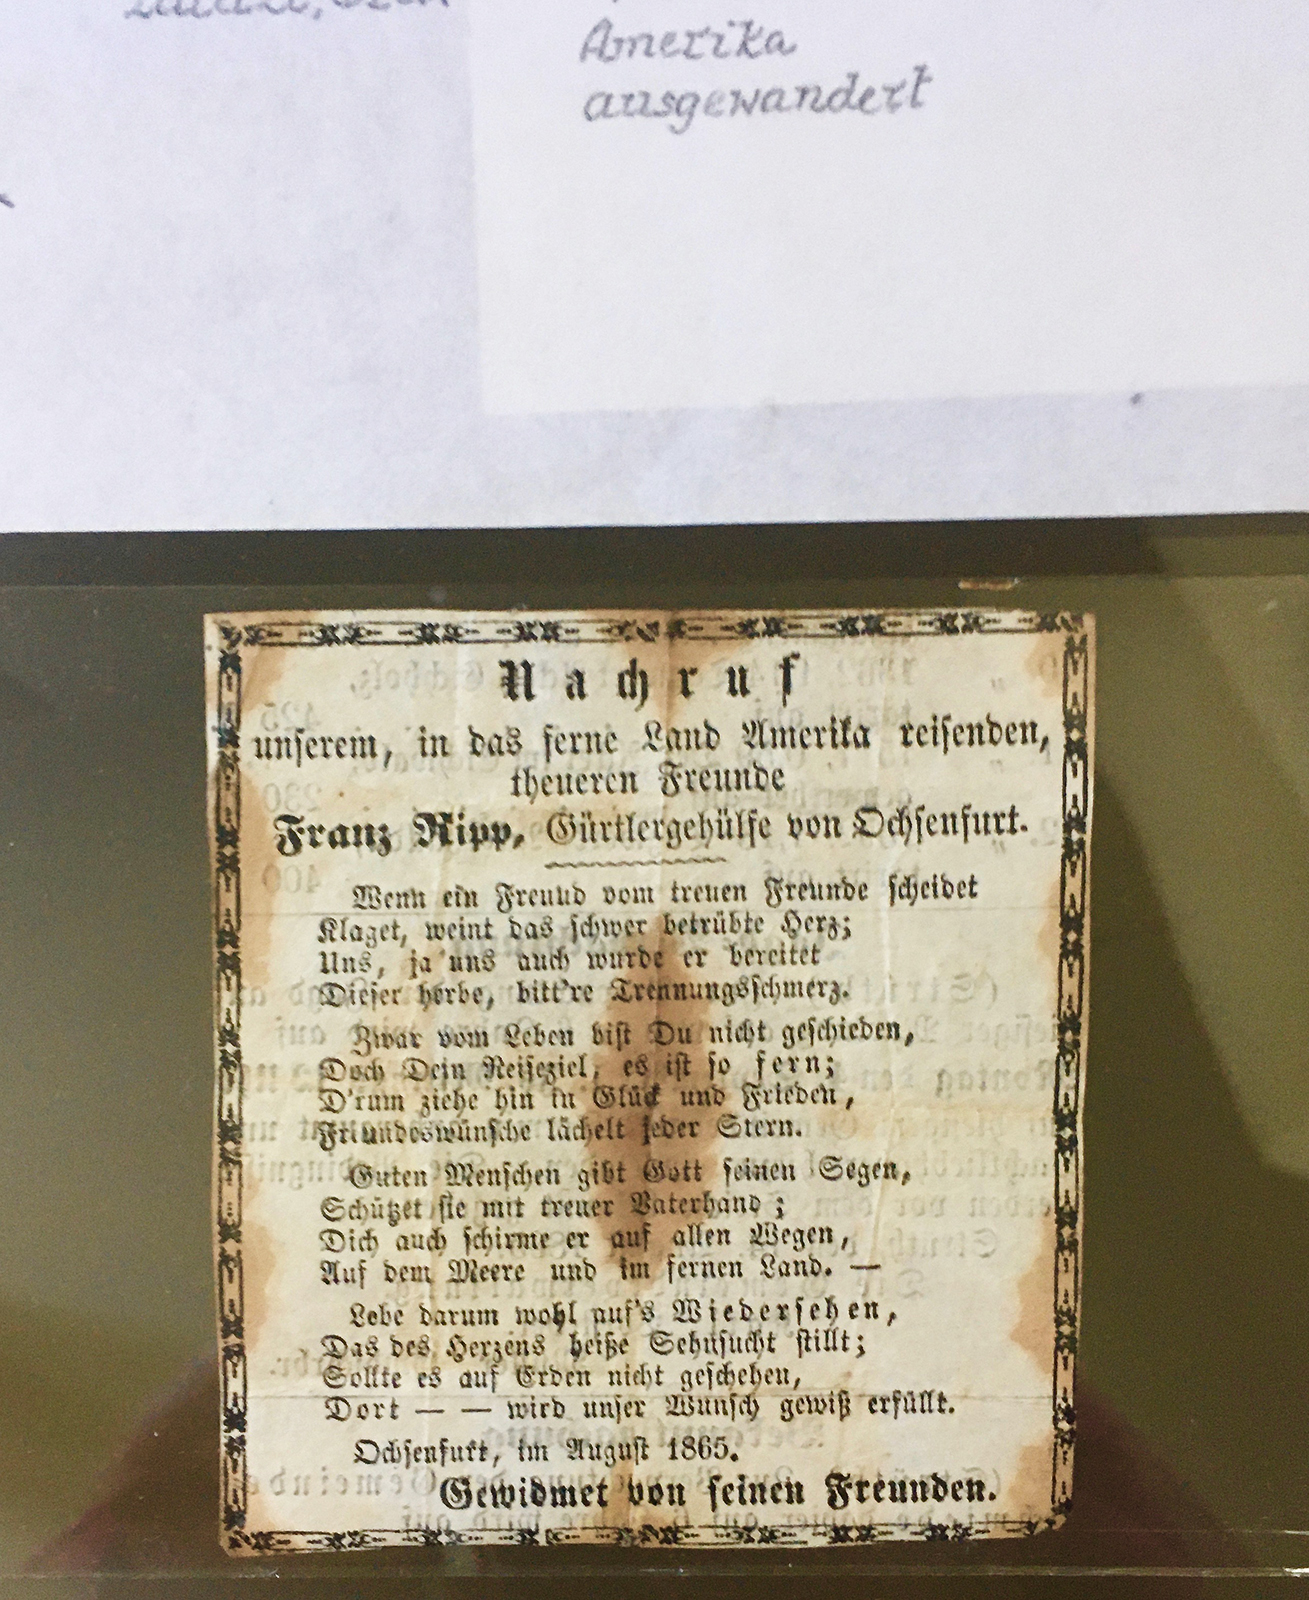 Amerika
ausgewandert
Nachruf
unserem, in das ferne Land Amerika reisenden,
theueren Freunde
Franz Ripp, Gürtlergehülfe von Ochsenfurt.
Wenn ein Freund vom treuen Freunde scheidet
Klaget, weint das schwer betrübte Herz;
Uns, ja uns auch wurde er bereitet
Dieser herbe, bitt're Trennungsschmerz.
Zwar vom Leben bist Du nicht geschieden,
Doch Dein Reiseziel, es ist so fern;
D'rum ziehe hin in Glück und Frieden,
Freundeswünsche lächelt jeder Stern.
Guten Menschen gibt Gott seinen Segen,
Schützet sie mit treuer Vaterhand;
Dich auch schirme er auf allen Wegen,
Auf dem Meere und im fernen Land. —
Lebe darum wohl auf's Wiedersehen,
Das des Herzens heiße Sehnsucht stillt;
Sollte es auf Erden nicht geschehen,
Dort — — wird unser Wunsch gewiß erfüllt.
Ochsenfurt, im August 1865.
Gewidmet von seinen Freunden.